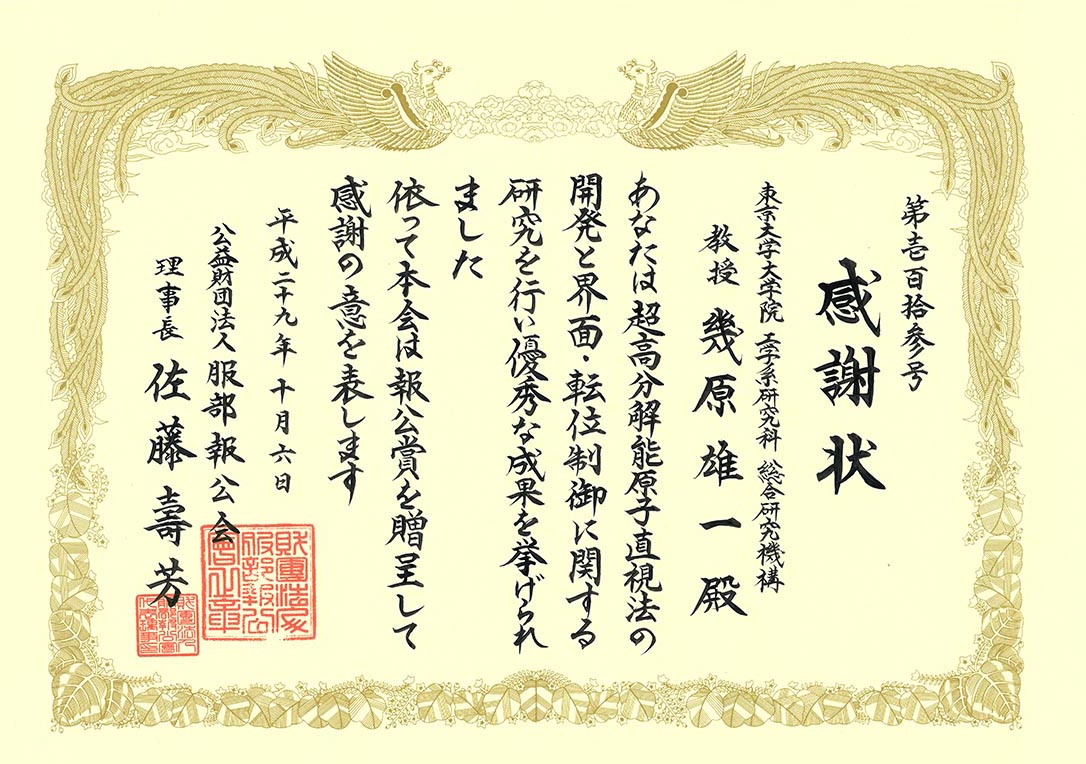 第壱百拾参号
感謝状
東京大学大学院 工学系研究科 総合研究機構
教授 幾原雄一殿
あなたは超高分解能原子直視法の
開発と界面・転位制御に関する
研究を行い優秀な成果を挙げられ
ました
依って本会は報公賞を贈呈して
感謝の意を表します
平成二十九年十月六日
公益財団法人 服部報公会
理事長 佐藤壽芳